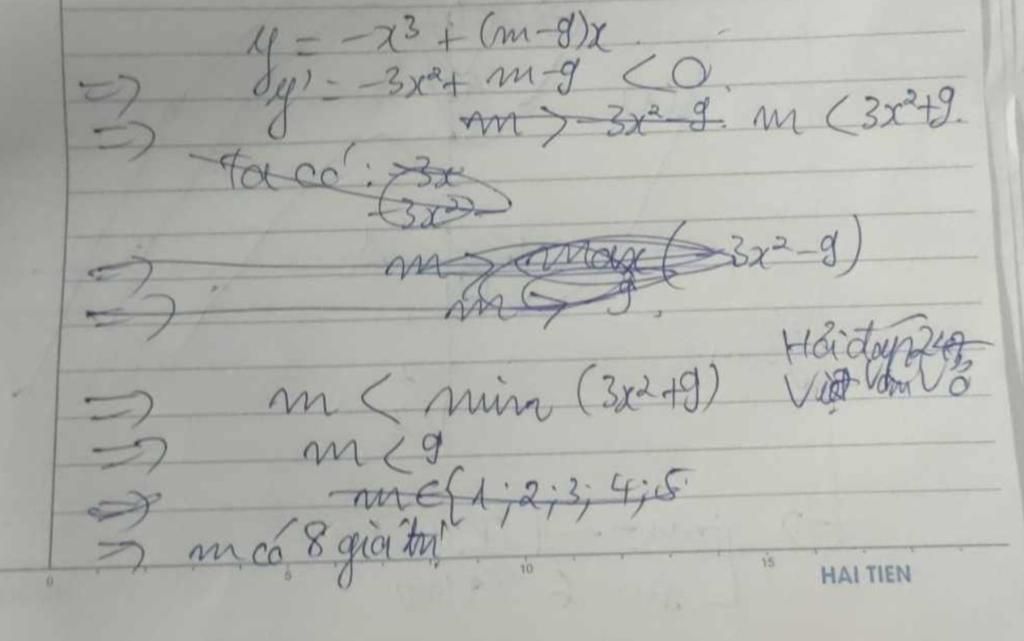 y = -x³ + (m-9)x
=> y' = -3x² + m-9 < 0
=> m > -3x²-9. m < 3x²+9.
Ta có: -3x
-3x²
=> m > max (3x²-9)
=> m > 9.
Hỏi đáp 247
=> m < min (3x²+9)
=> m < 9
=> m ∈ {1; 2; 3; 4; 5
=> m có 8 giá trị
0 5 10 15
HAI TIEN